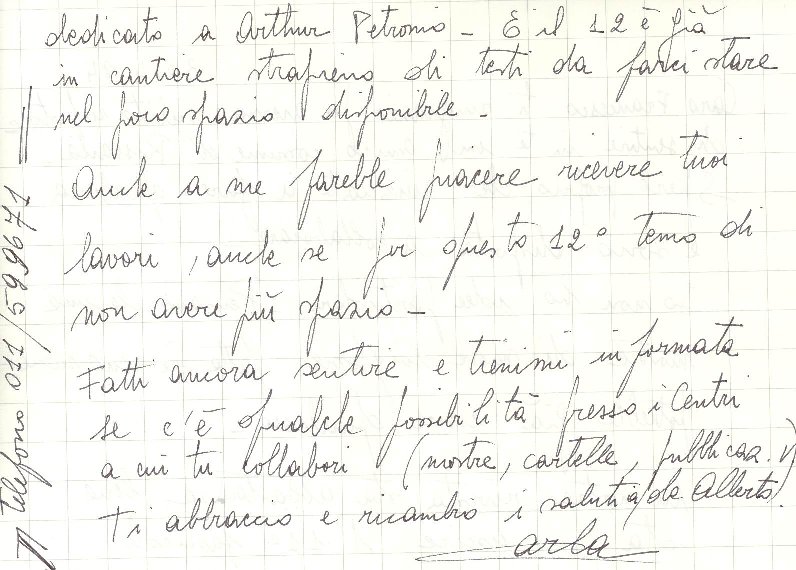 dedicato a Arthur Petronio - E il 12 è già
in cantiere strapieno di testi da farci stare
nel poco spazio disponibile -
Anche a me farebbe piacere ricevere tuoi
lavori, anche se per questo 12° temo di
non avere più spazio -
Fatti ancora sentire e tienimi informata
se c'è qualche possibilità presso i Centri
a cui tu collabori (mostre, cartelle, pubblicaz.
Ti abbraccio e ricambio i saluti (da Alberto).
Carla
telefono 011/599671